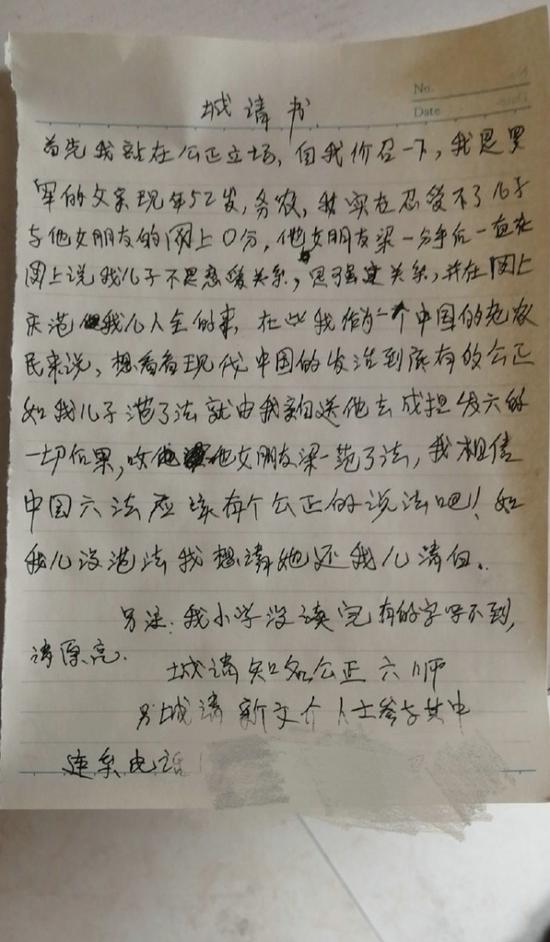 No.
Date
城请书
首先我站在公正立场，自我价召一下，我是罗
军的父亲现年52岁，务农，我实在忍受不了儿子
与他女朋友的网上0分，他女朋友梁一分手后一直在
网上说我儿子不是恋爱关系，是强建关系，并在网上
我儿人全的事，在此我作为一个中国的老农
民来说，想看看现代中国的发治到底有的公正
如我儿子范了法就由我亲自送他去成担发六的
一切后果，他女朋友梁一范了法，我相信
中国六法应该有个公正的说法吧！如
我儿没范法我想请她还我儿清白。
另注：我小学没读完有的字写不到，
请原亮.
城请知名公正六师
另城请新文介人士参与其中
连系电话